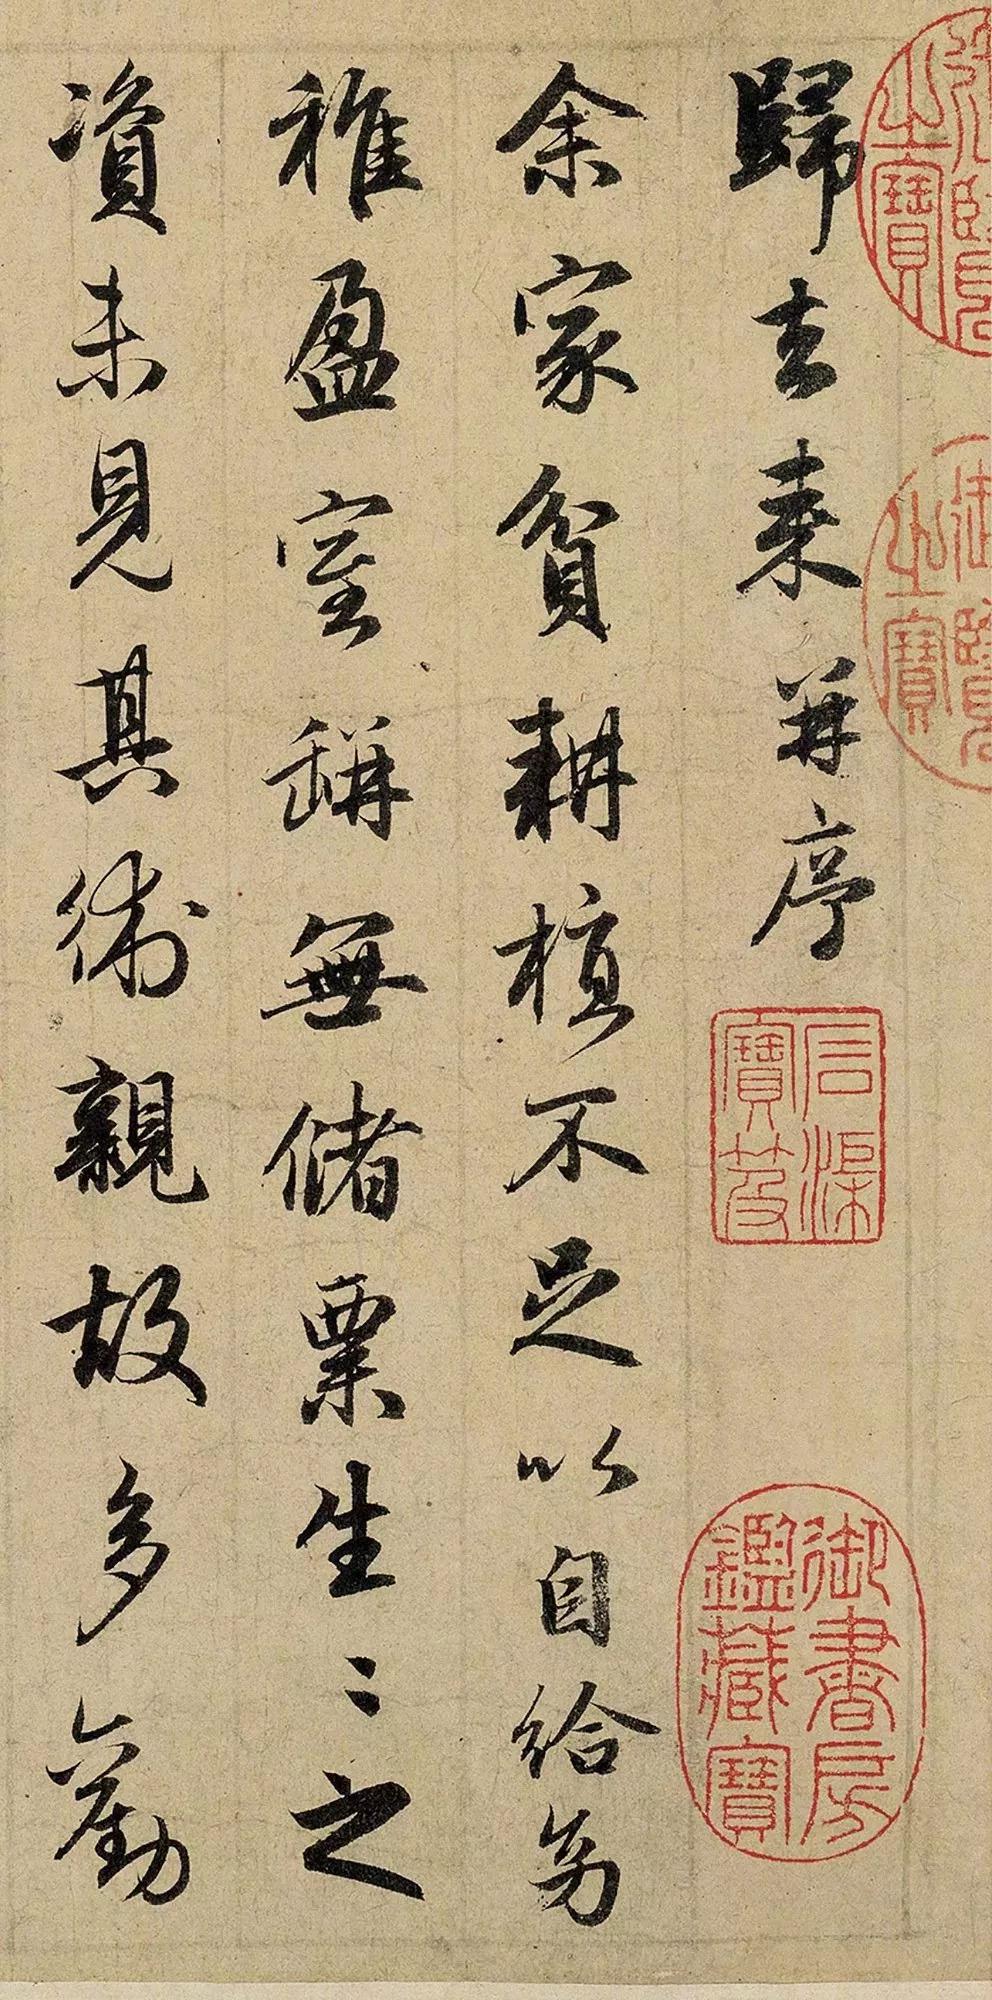 之寶
御覽之寶
歸去来并序
石渠寶笈
御書房鑑藏寶
余家貧耕植不足以自給幼
稚盈室缾無儲粟生〻之
資未見其術親故多勸